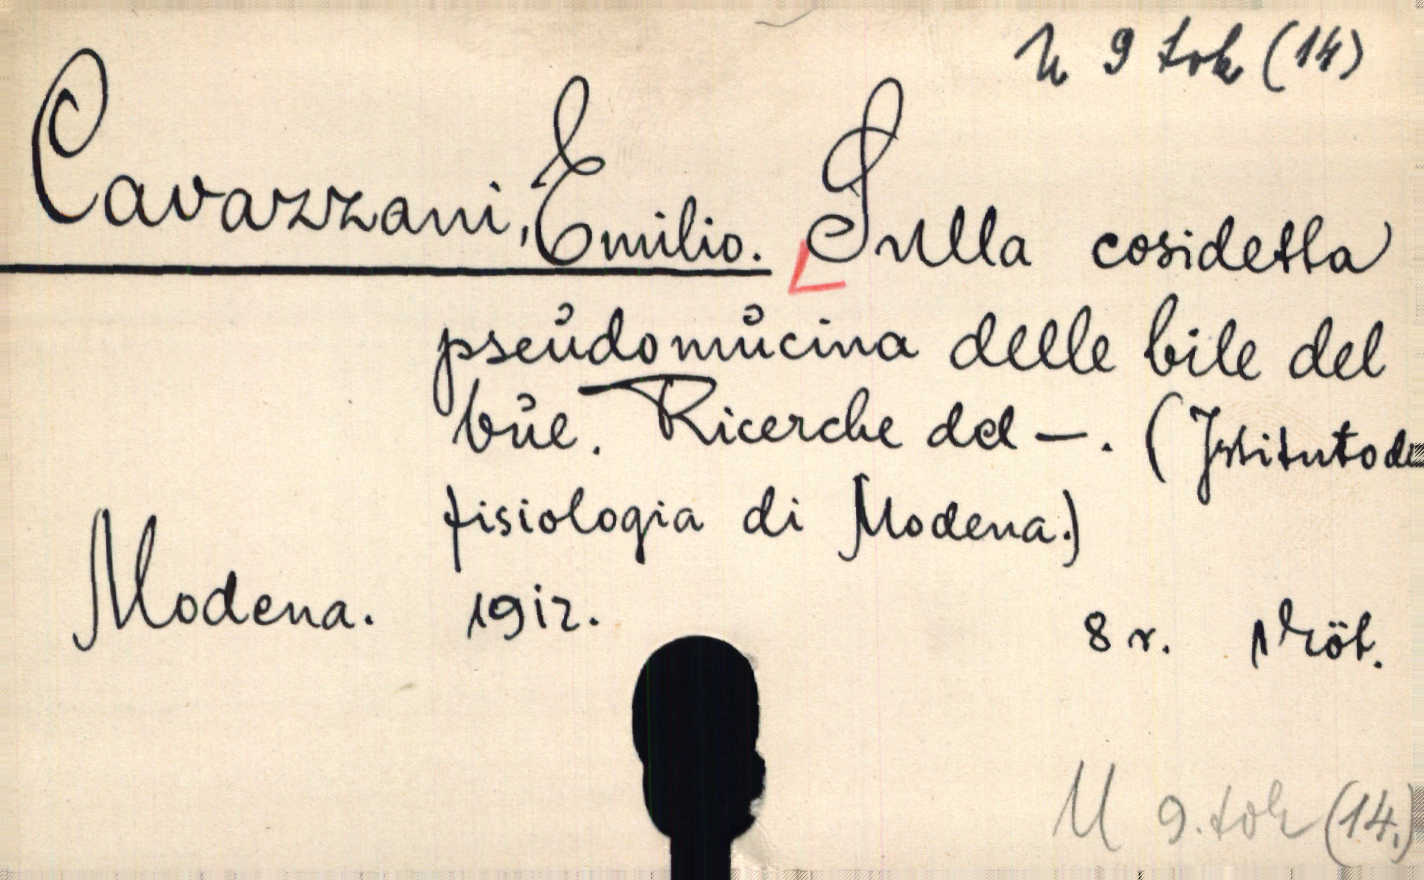 U 9 tok (14)
Cavazzani, Emilio. Sulla cosidetta
pseudomucina delle bile del
bue. Ricerche del —. (Istituto di
fisiologia di Modena.)
Modena. 1912. 8 r. 1 köt.
U 9. tok (14.)